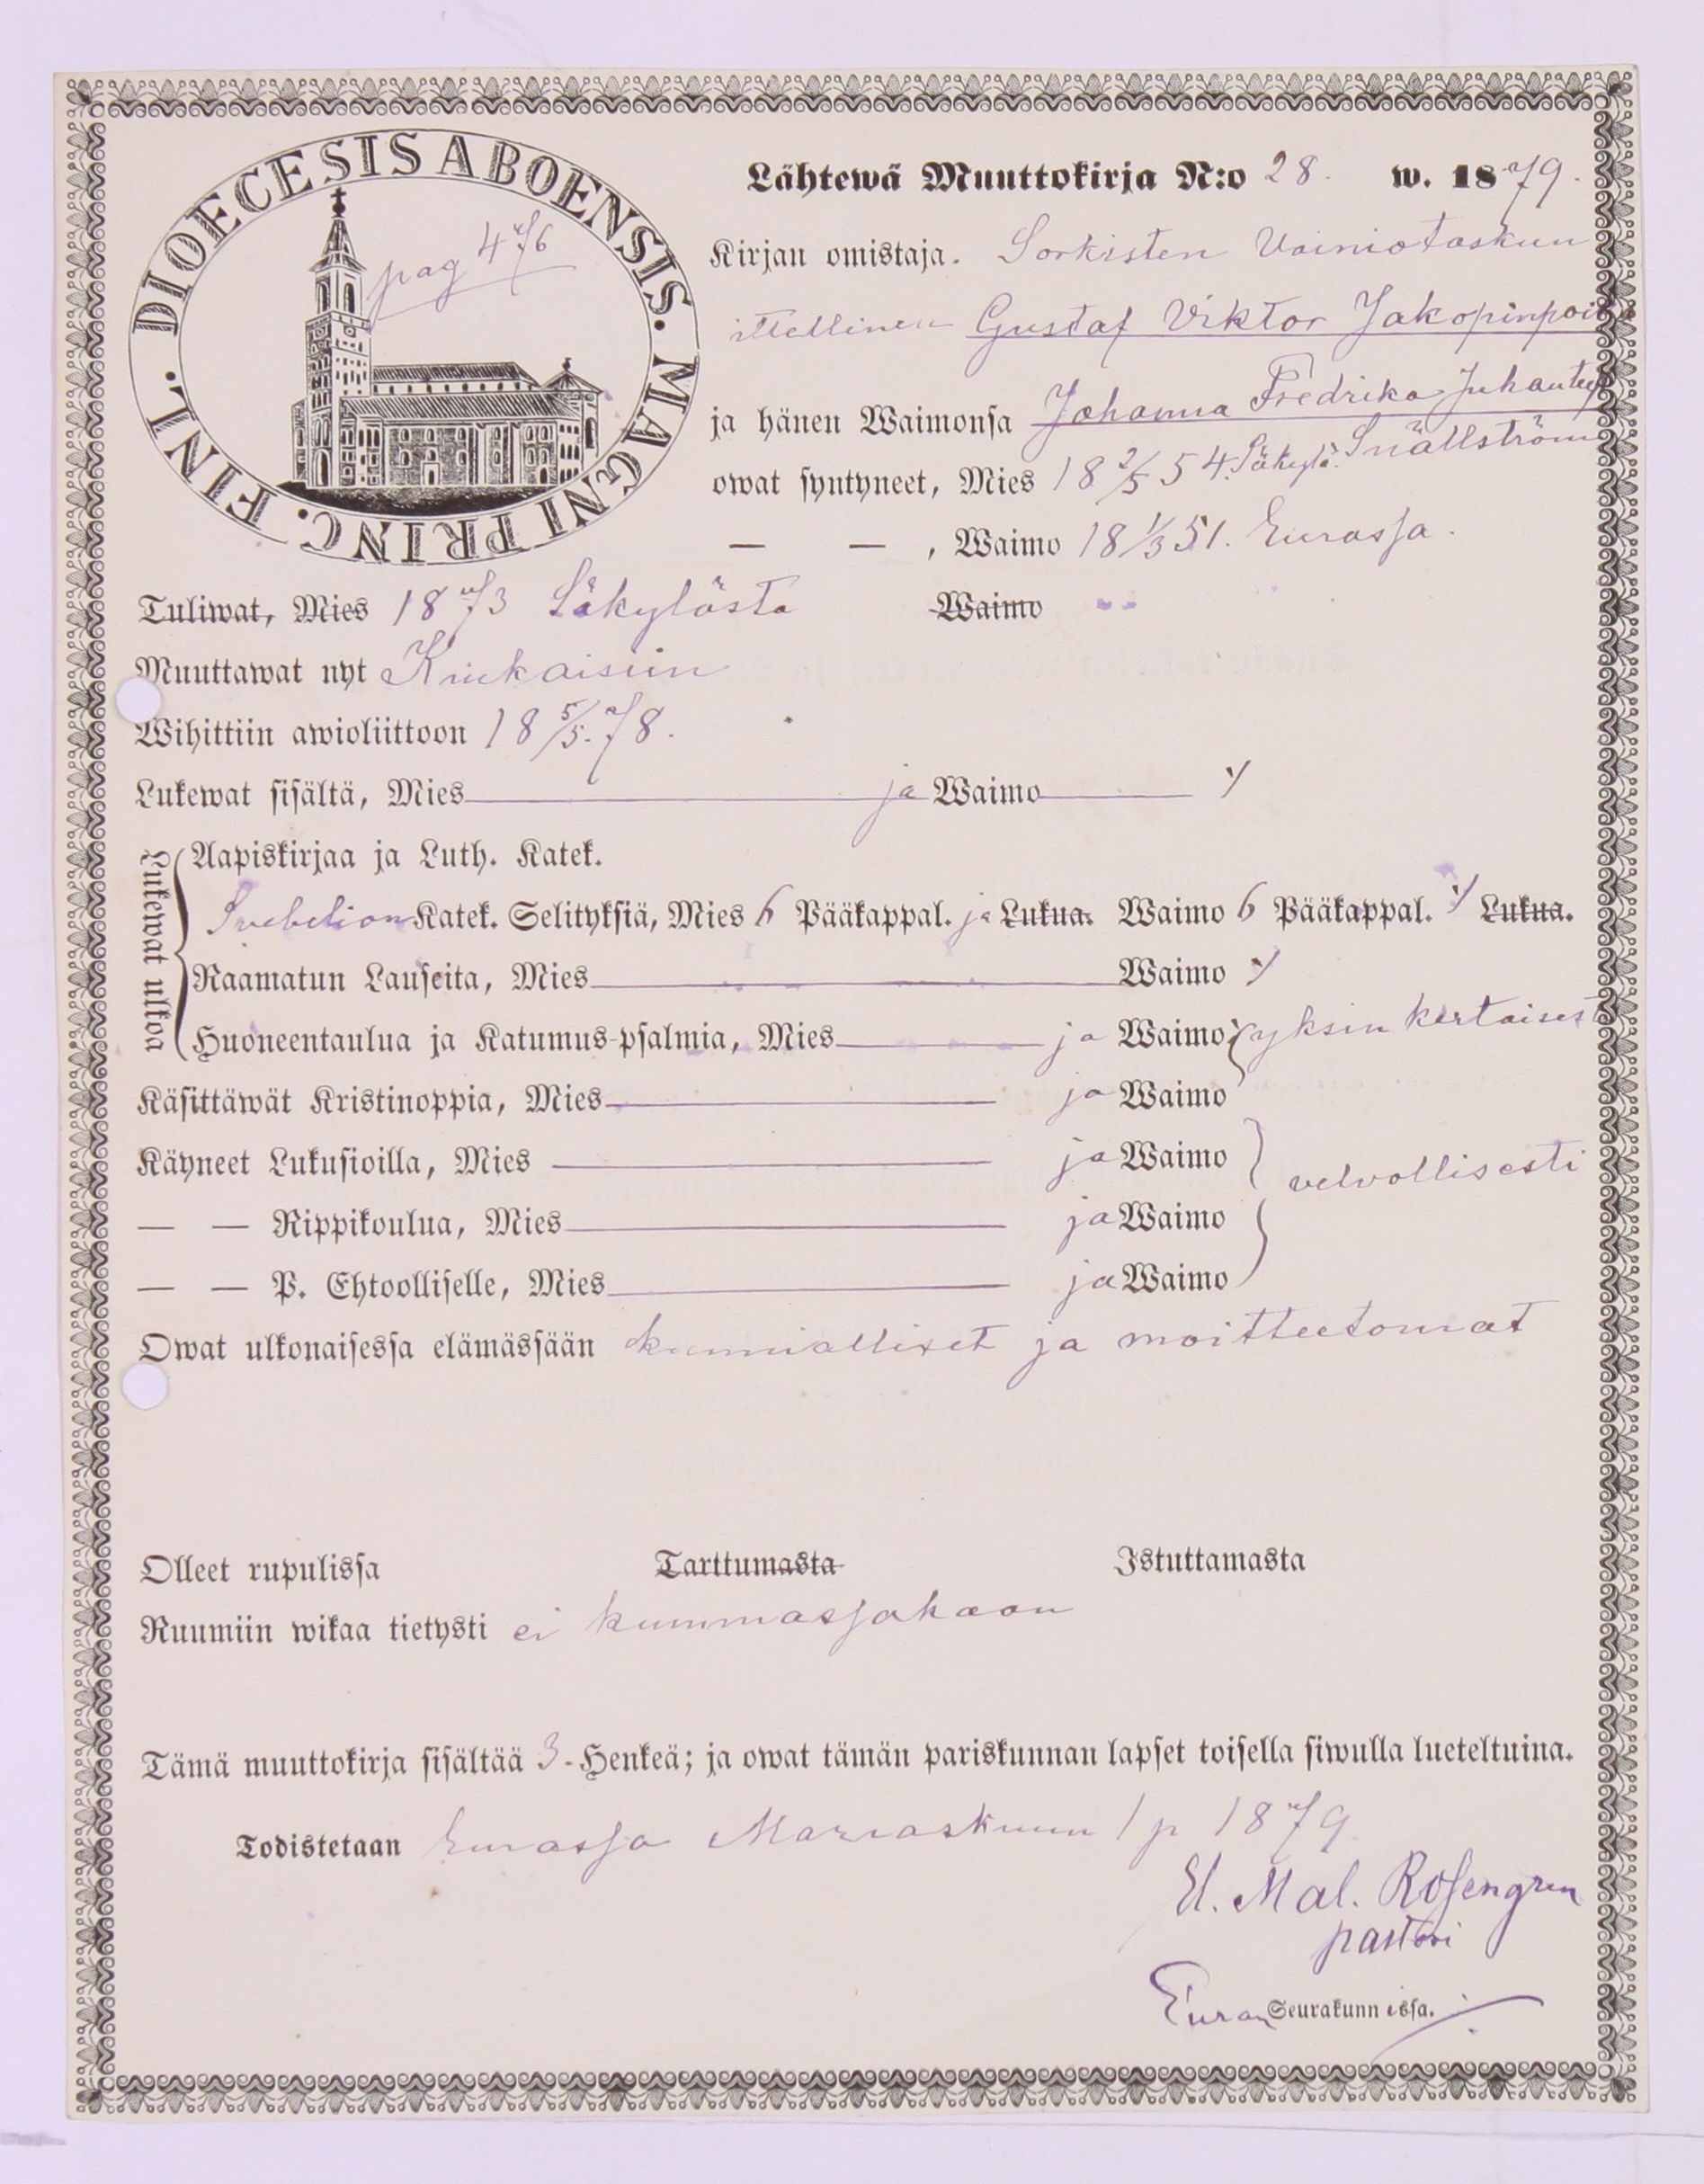 DIOECESIS ABOENSIS. MAGNI PRINC. FINL.
pag 476
Lähtewä Muuttokirja N:o 28. w. 1879.
Kirjan omistaja. Sorkisten Vainiotaskun
ittellinen Gustaf Viktor Jakopinpoika
ja hänen Waimonsa Johanna Fredrika Juhantyt
Snällström
owat syntyneet, Mies 18 2/5 54. Säkylä.
— — , Waimo 18 1/3 51. Eurassa.
Tuliwat, Mies 1873 Säkylästä Waimo
Muuttawat nyt Kiukaisiin
Wihittiin awioliittoon 18 5/5. 78.
Lukewat sisältä, Mies ja Waimo
Lukewat ulkoa
Aapiskirjaa ja Luth. Katek.
Svebelion Katek. Selityksiä, Mies 6 Pääkappal. ja Lukua. Waimo 6 Pääkappal. Lukua.
Raamatun Lauseita, Mies Waimo
Huoneentaulua ja Katumus-psalmia, Mies ja Waimo yksin kertaisesti
Käsittäwät Kristinoppia, Mies ja Waimo
Käyneet Lukusioilla, Mies ja Waimo velvollisesti
— — Rippikoulua, Mies ja Waimo
— — P. Ehtoolliselle, Mies ja Waimo
Owat ulkonaisessa elämässään kunnialliset ja moitteetomat
Olleet rupulissa Tarttumasta Istuttamasta
Ruumiin wikaa tietysti ei kummassakaan
Tämä muuttokirja sisältää 3 - Henkeä; ja owat tämän pariskunnan lapset toisella siwulla lueteltuina.
Todistetaan Eurassa Marraskuun 1 p 1879
El. Mal. Rosengren
pastori
Euran Seurakunnissa.